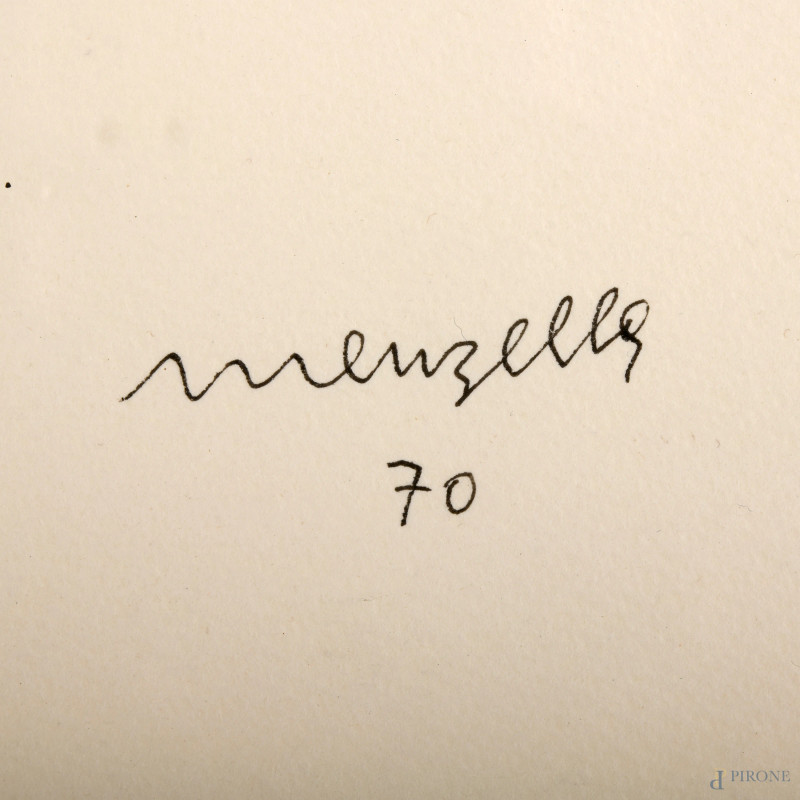 menzella
70
PIRONE